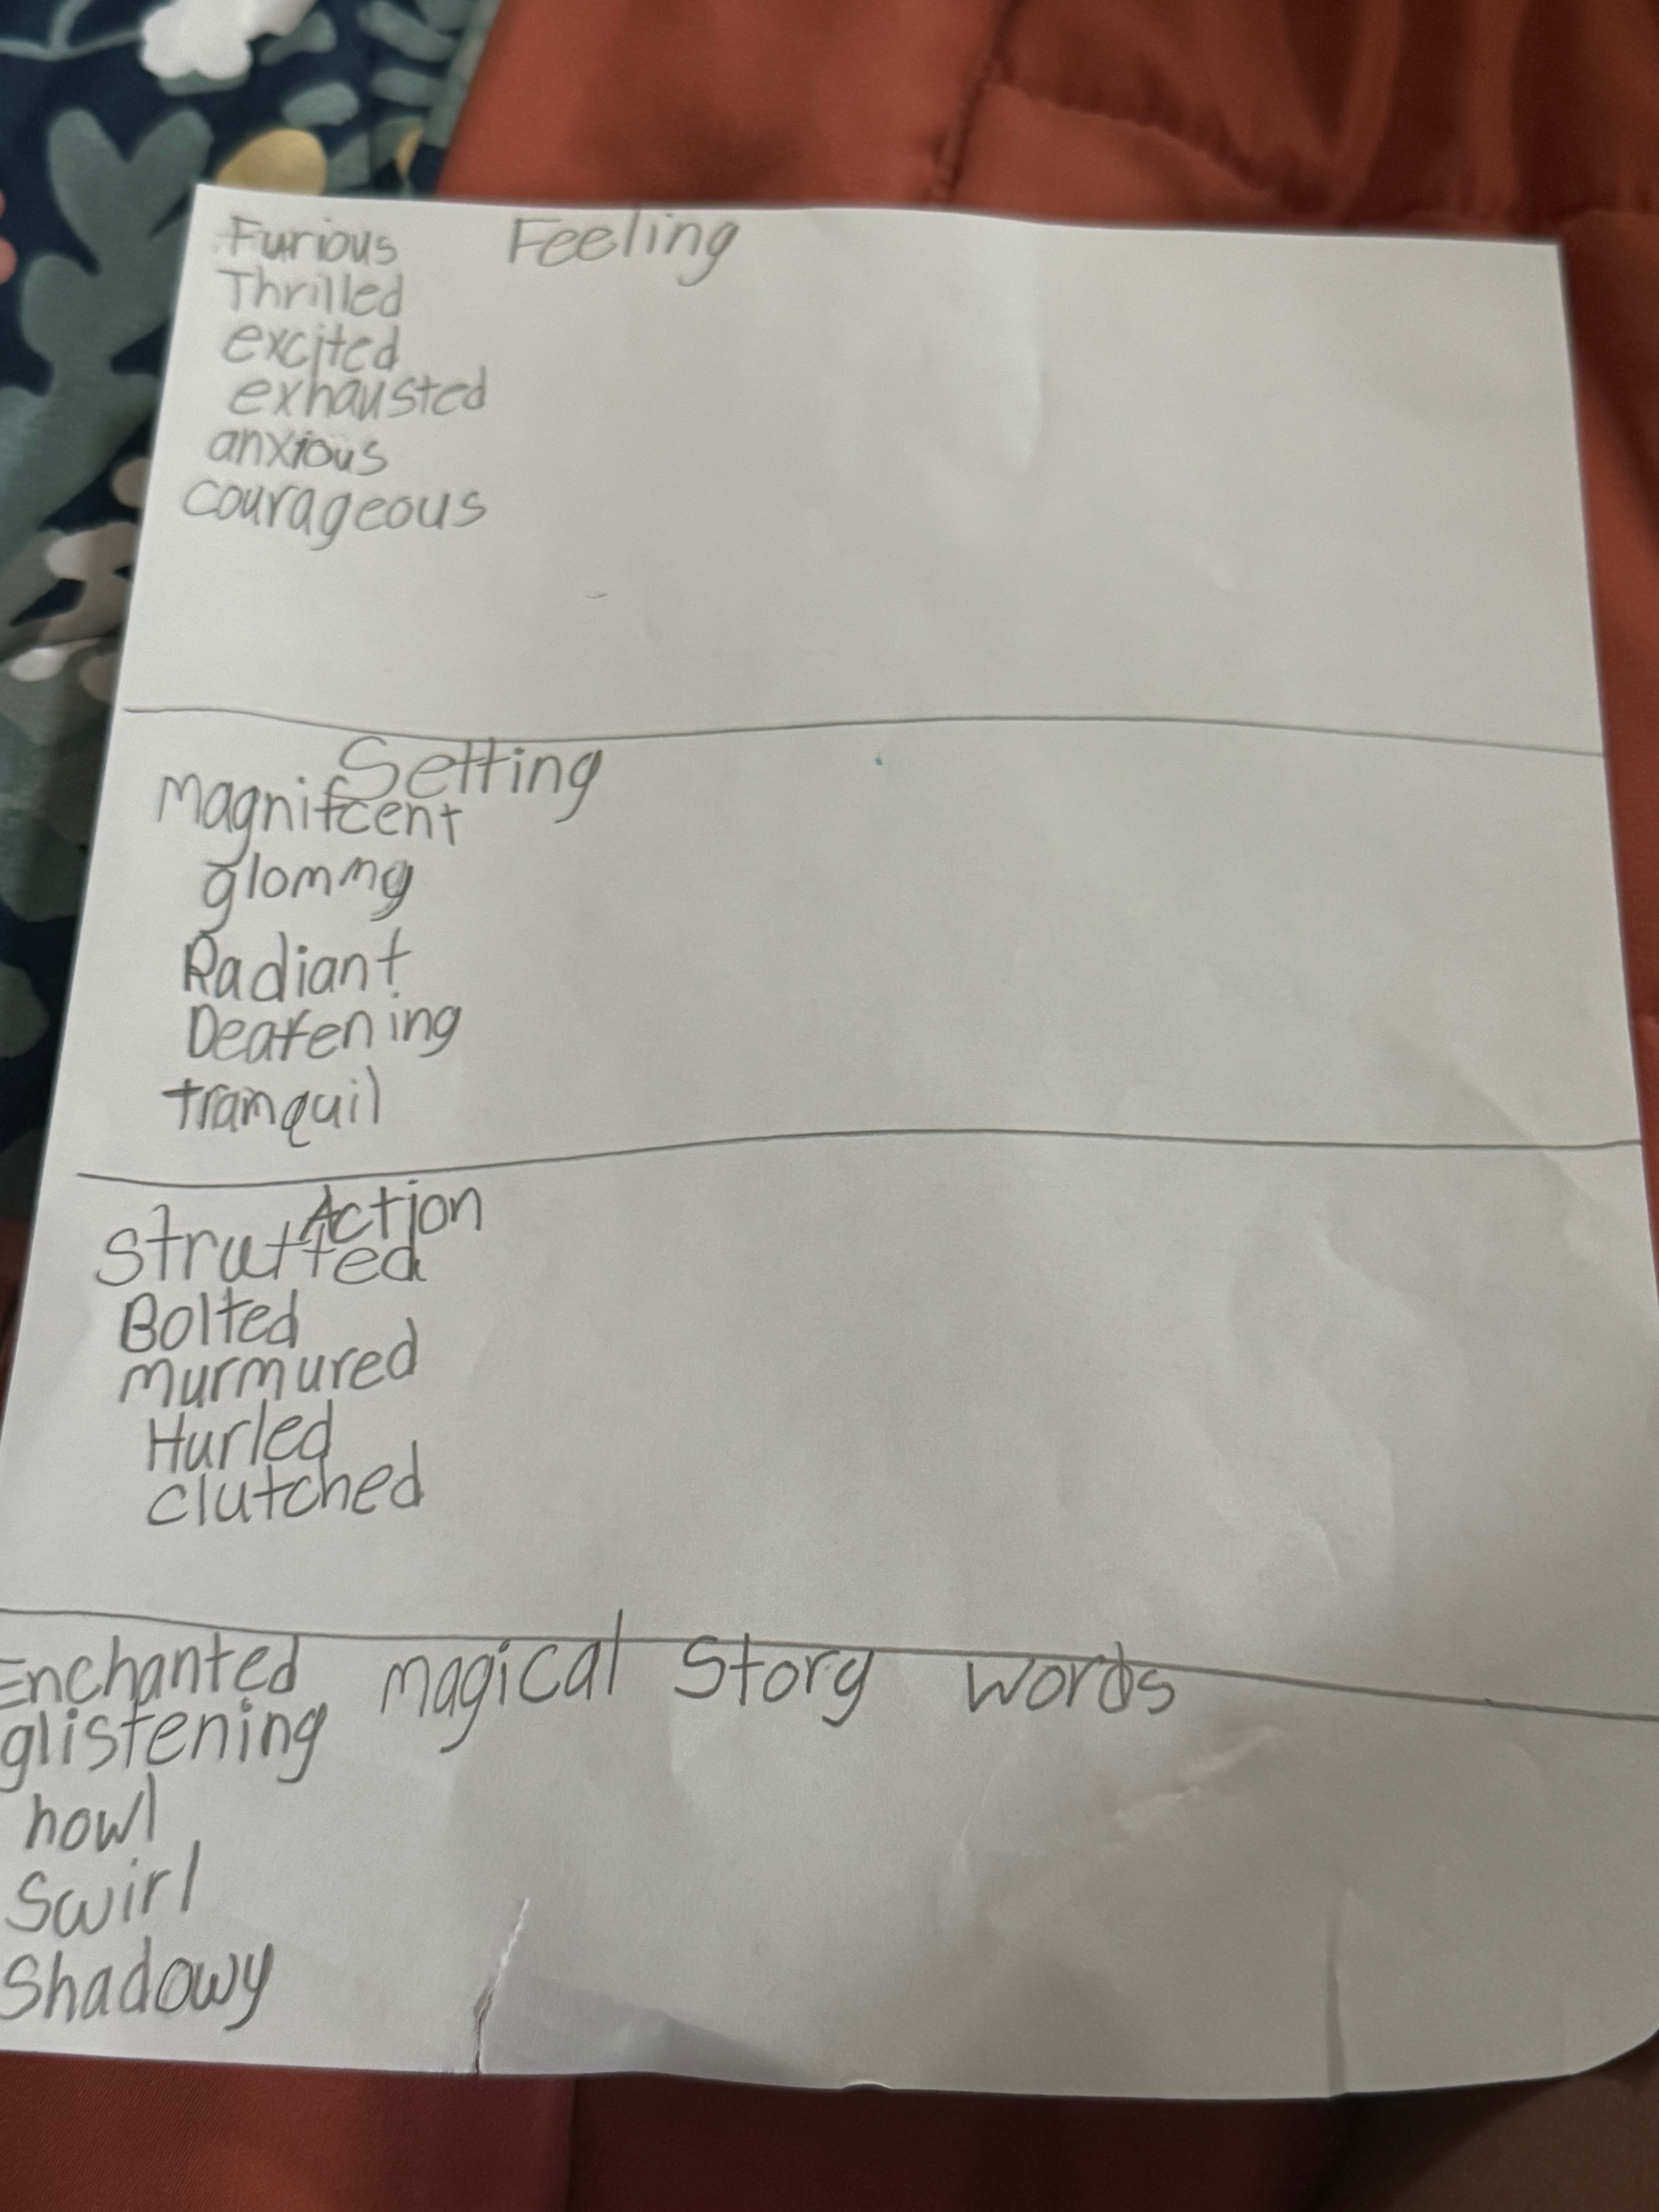 Feeling
Furious
Thrilled
excited
exhausted
anxious
courageous
Setting
Magnifcent
glommg
Radiant
Deafening
tranquil
Action
Strutted
Bolted
murmured
Hurled
clutched
magical Story words
Enchanted
glistening
howl
Swirl
Shadowy